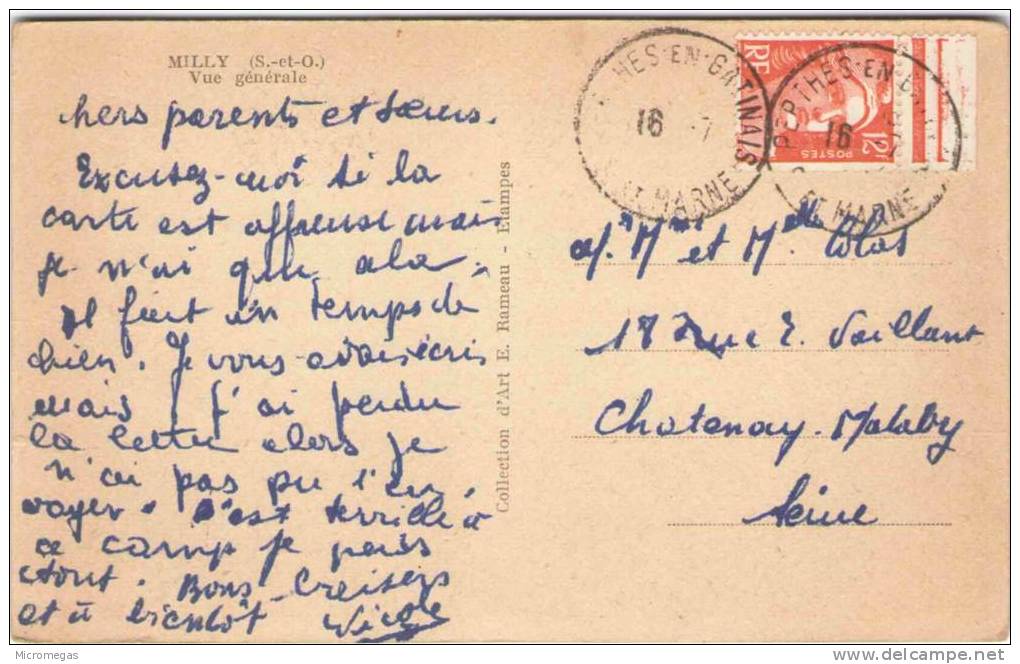 MILLY (S.-et-O.)
Vue générale
hers parents et sœurs.
Excusez-moi si la
carte est affreuse mais
je n'ai que cela.
Il fait un temps de
chien. Je vous avais écris
mais j'ai perdu
la lettre alors je
n'ai pas pu l'en
voyer. C'est terrible à
ce camp je perds
tout. Bons baisers
et à bientôt Nicole
Collection d'Art E. Rameau - Etampes
HES-EN-GATINAIS
16 -7
ET MARNE
RF
POSTES
12F
PERTHES-EN-GA
16
ET MARNE
Mr et Mlle
18 Rue E. Vaillant
Chatenay-Malabry
Seine
Micromegas
www.delcampe.net